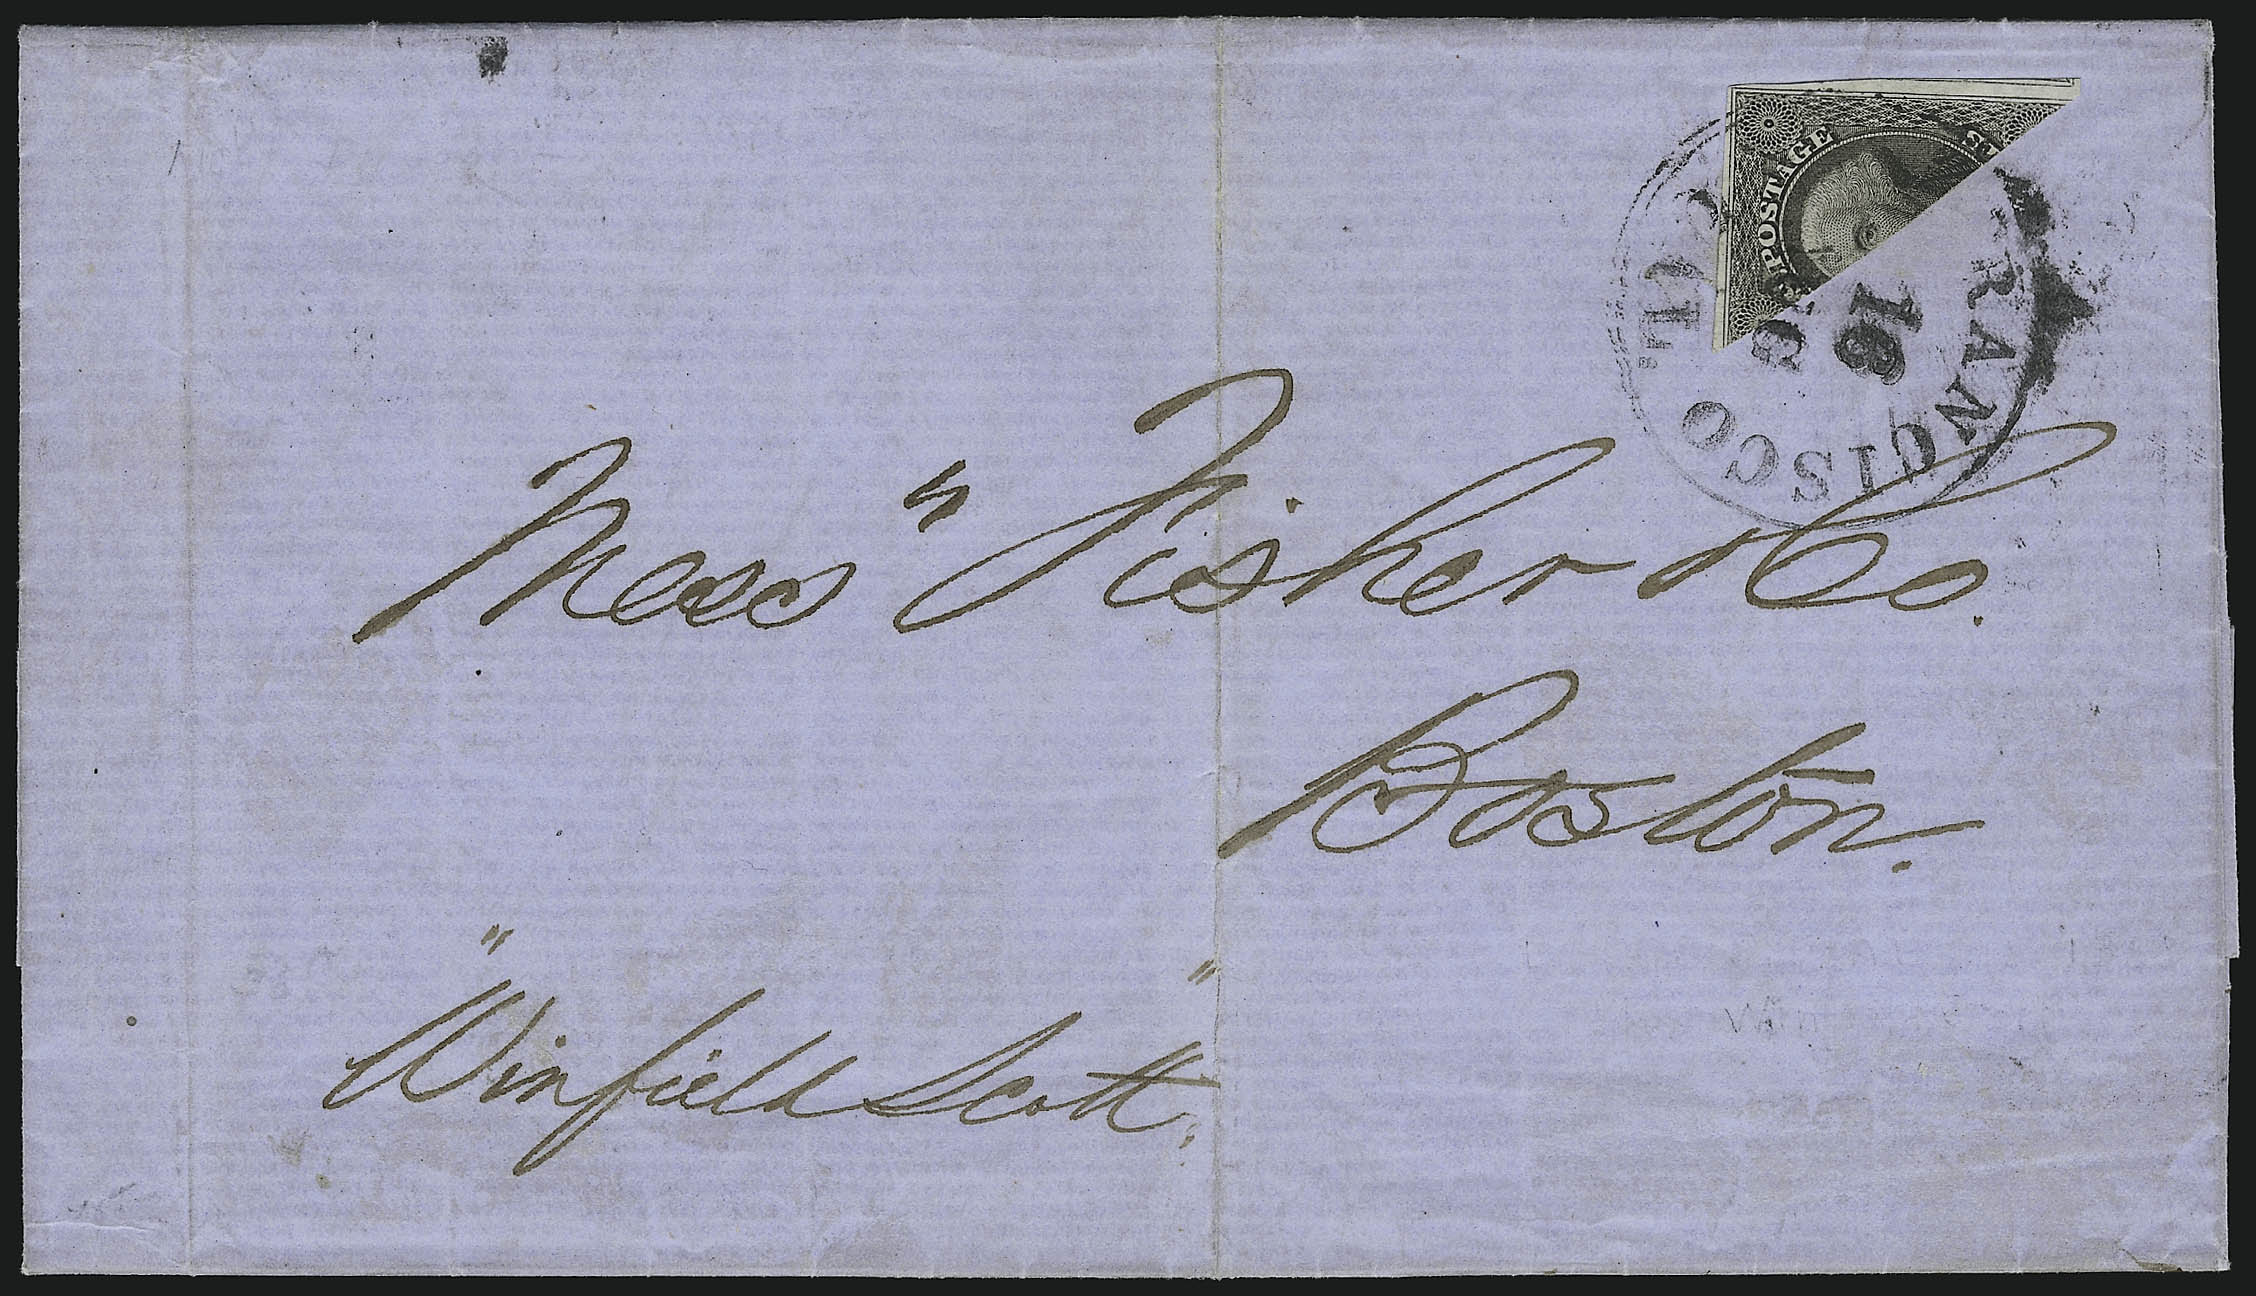 POSTAGE
SAN FRANCISCO CAL.
16
Mess" Fisher & Co.
Boston.
"Winfield Scott".